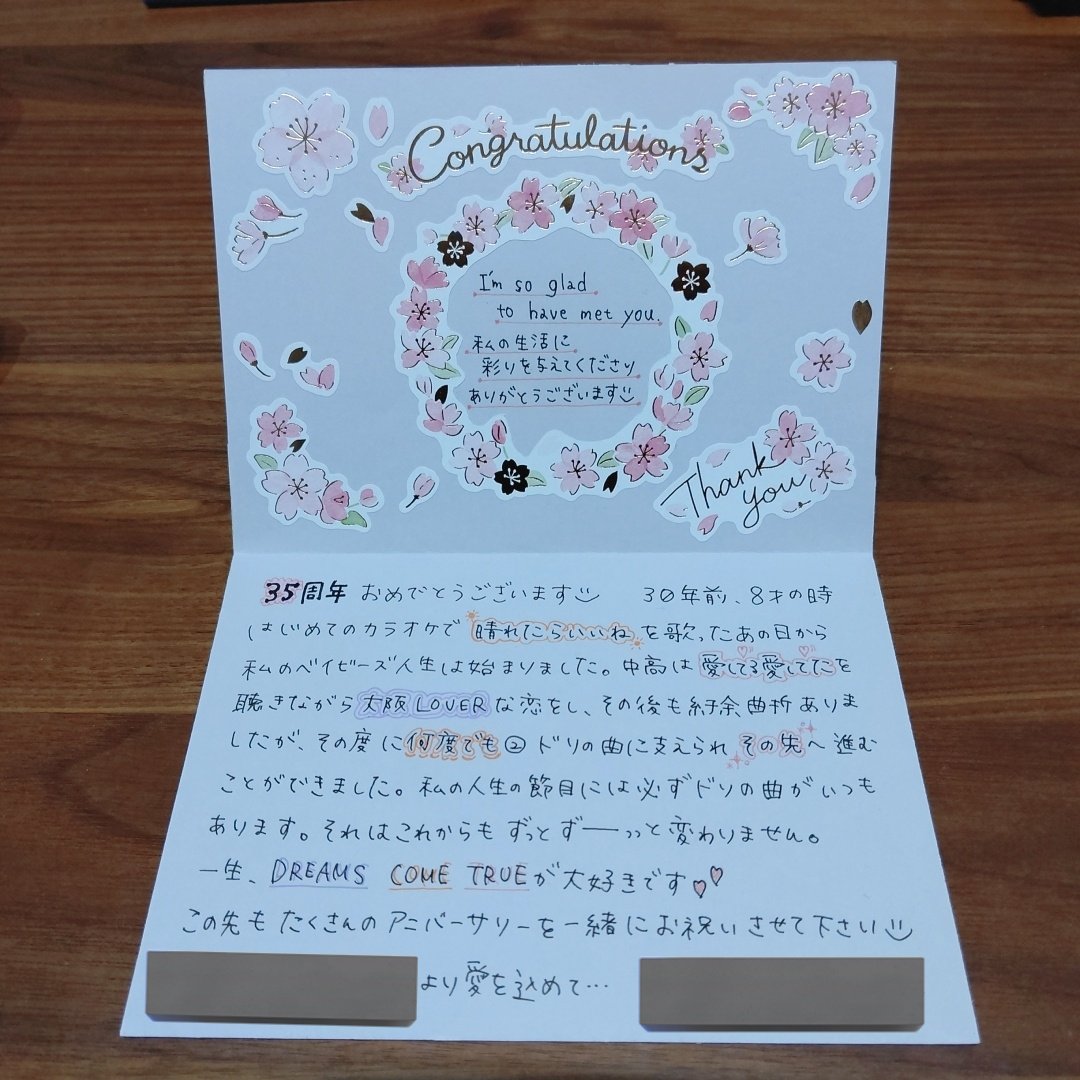 Congratulations
I'm so glad
to have met you.
私の生活に
彩りを与えてくださり
ありがとうございます
Thank
you
35周年 おめでとうございます 30年前、8才の時
はじめてのカラオケで 晴れたらいいね を歌ったあの日から
私のベイビーズ人生は始まりました。中高は 愛してる愛してた を
聴きながら 大阪LOVER な恋をし、その後も紆余曲折ありま
したが、その度に 何度でも② ドリの曲に支えられ その先へ 進む
ことができました。私の人生の節目には必ずドリの曲がいつも
あります。それはこれからもずっとずーーっっと変わりません。
一生、DREAMS COME TRUEが大好きです♡♡
この先もたくさんのアニバーサリーを一緒にお祝いさせて下さい
より愛を込めて…